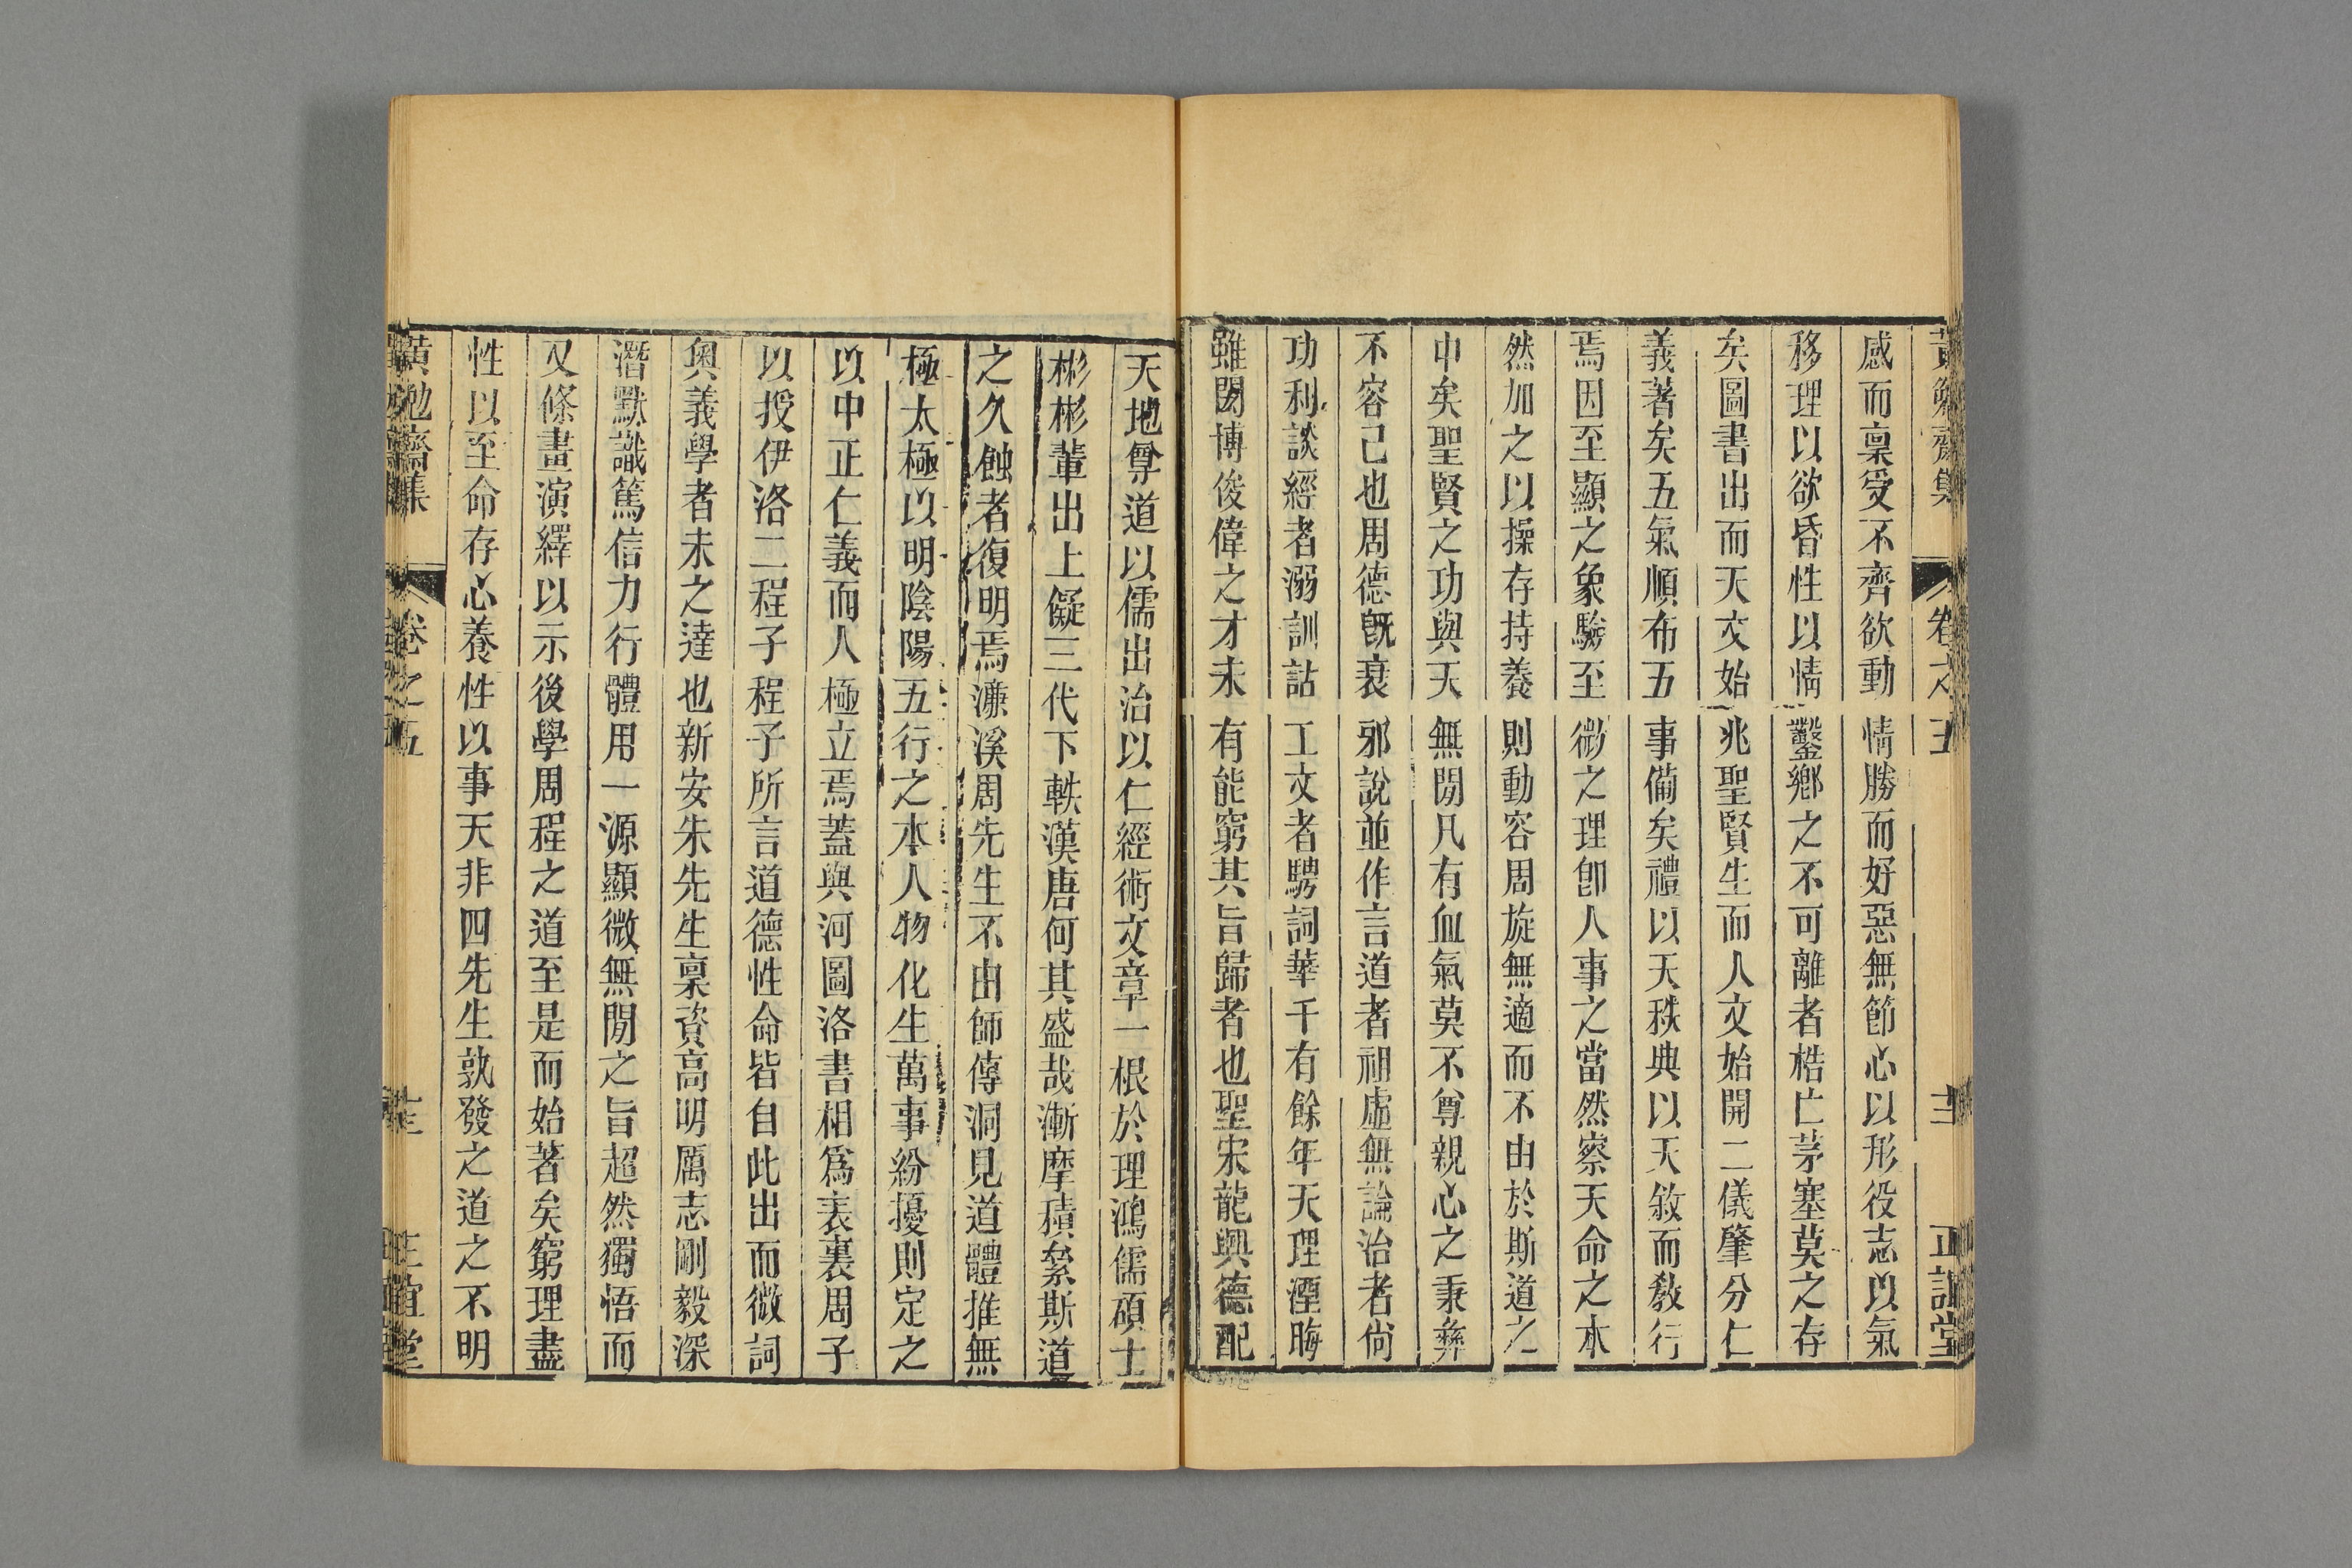 黃勉齋集 卷之五 正誼堂
感而稟受不齊欲動情勝而好惡無節心以形役志以氣
移理以欲昏性以情鑿鄉之不可離者梏亡茅塞莫之存
矣圖書出而天文始兆聖賢生而人文始開二儀肇分仁
義著矣五氣順布五事備矣禮以天秩典以天敘而敎行
焉因至顯之象驗至微之理卽人事之當然察天命之本
然加之以操存持養則動容周旋無適而不由於斯道之
中矣聖賢之功與天無閒凡有血氣莫不尊親心之秉彝
不容已也周德旣衰邪說並作言道者祖虛無論治者尙
功利談經者溺訓詁工文者騁詞華千有餘年天理湮晦
雖閎博俊偉之才未有能窮其旨歸者也聖宋龍興德配
天地尊道以儒出治以仁經術文章一根於理鴻儒碩士
彬彬輩出上儗三代下軼漢唐何其盛哉漸摩積絫斯道
之久蝕者復明焉濂溪周先生不由師傳洞見道體推無
極太極以明陰陽五行之本人物化生萬事紛擾則定之
以中正仁義而人極立焉蓋與河圖洛書相爲表裏周子
以授伊洛二程子程子所言道德性命皆自此出而微詞
奧義學者未之達也新安朱先生稟資高明厲志剛毅深
潛默識篤信力行體用一源顯微無閒之旨超然獨悟而
又條畫演繹以示後學周程之道至是而始著矣窮理盡
性以至命存心養性以事天非四先生孰發之道之不明
黃勉齋集 卷之五 正誼堂